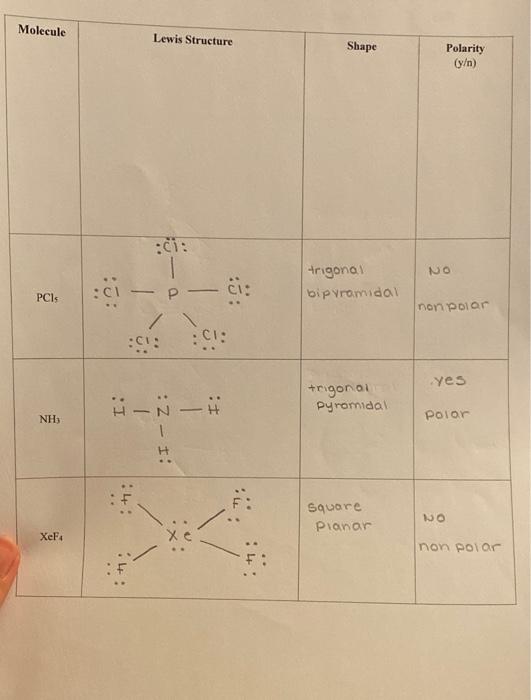 Molecule Lewis Structure Shape Polarity
(y/n)
:Cl:
PCl₅ :Cl — P — Cl: trigonal bipyramidal NO nonpolar
:Cl: :Cl:
NH₃ H — N — H trigonal pyramidal yes polar
H
:F F:
XeF₄ Xe square planar NO non polar
:F F: